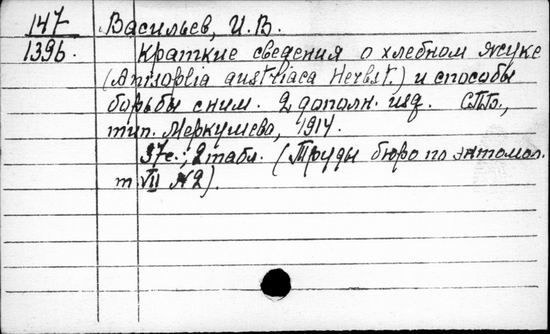 147 Васильев, И. В.
1396. Краткие сведения о хлебном жуке
(Anisoplia austriaca Herbst.) и способы
борьбы с ним. 2 дополн. изд. СПБ.,
тип. Меркушева, 1914.
37с.; 2 табл. (Труды бюро по энтомол.
т. VII №2).